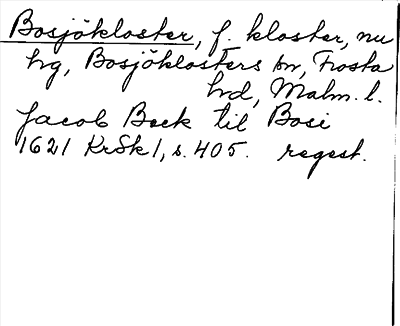 Bosjökloster, f. kloster, nu
hg, Bosjöklosters sn, Frosta
hd, Malm. l.
Jacob Beck til Bosi
1621 KrSk 1, s. 405. regest.